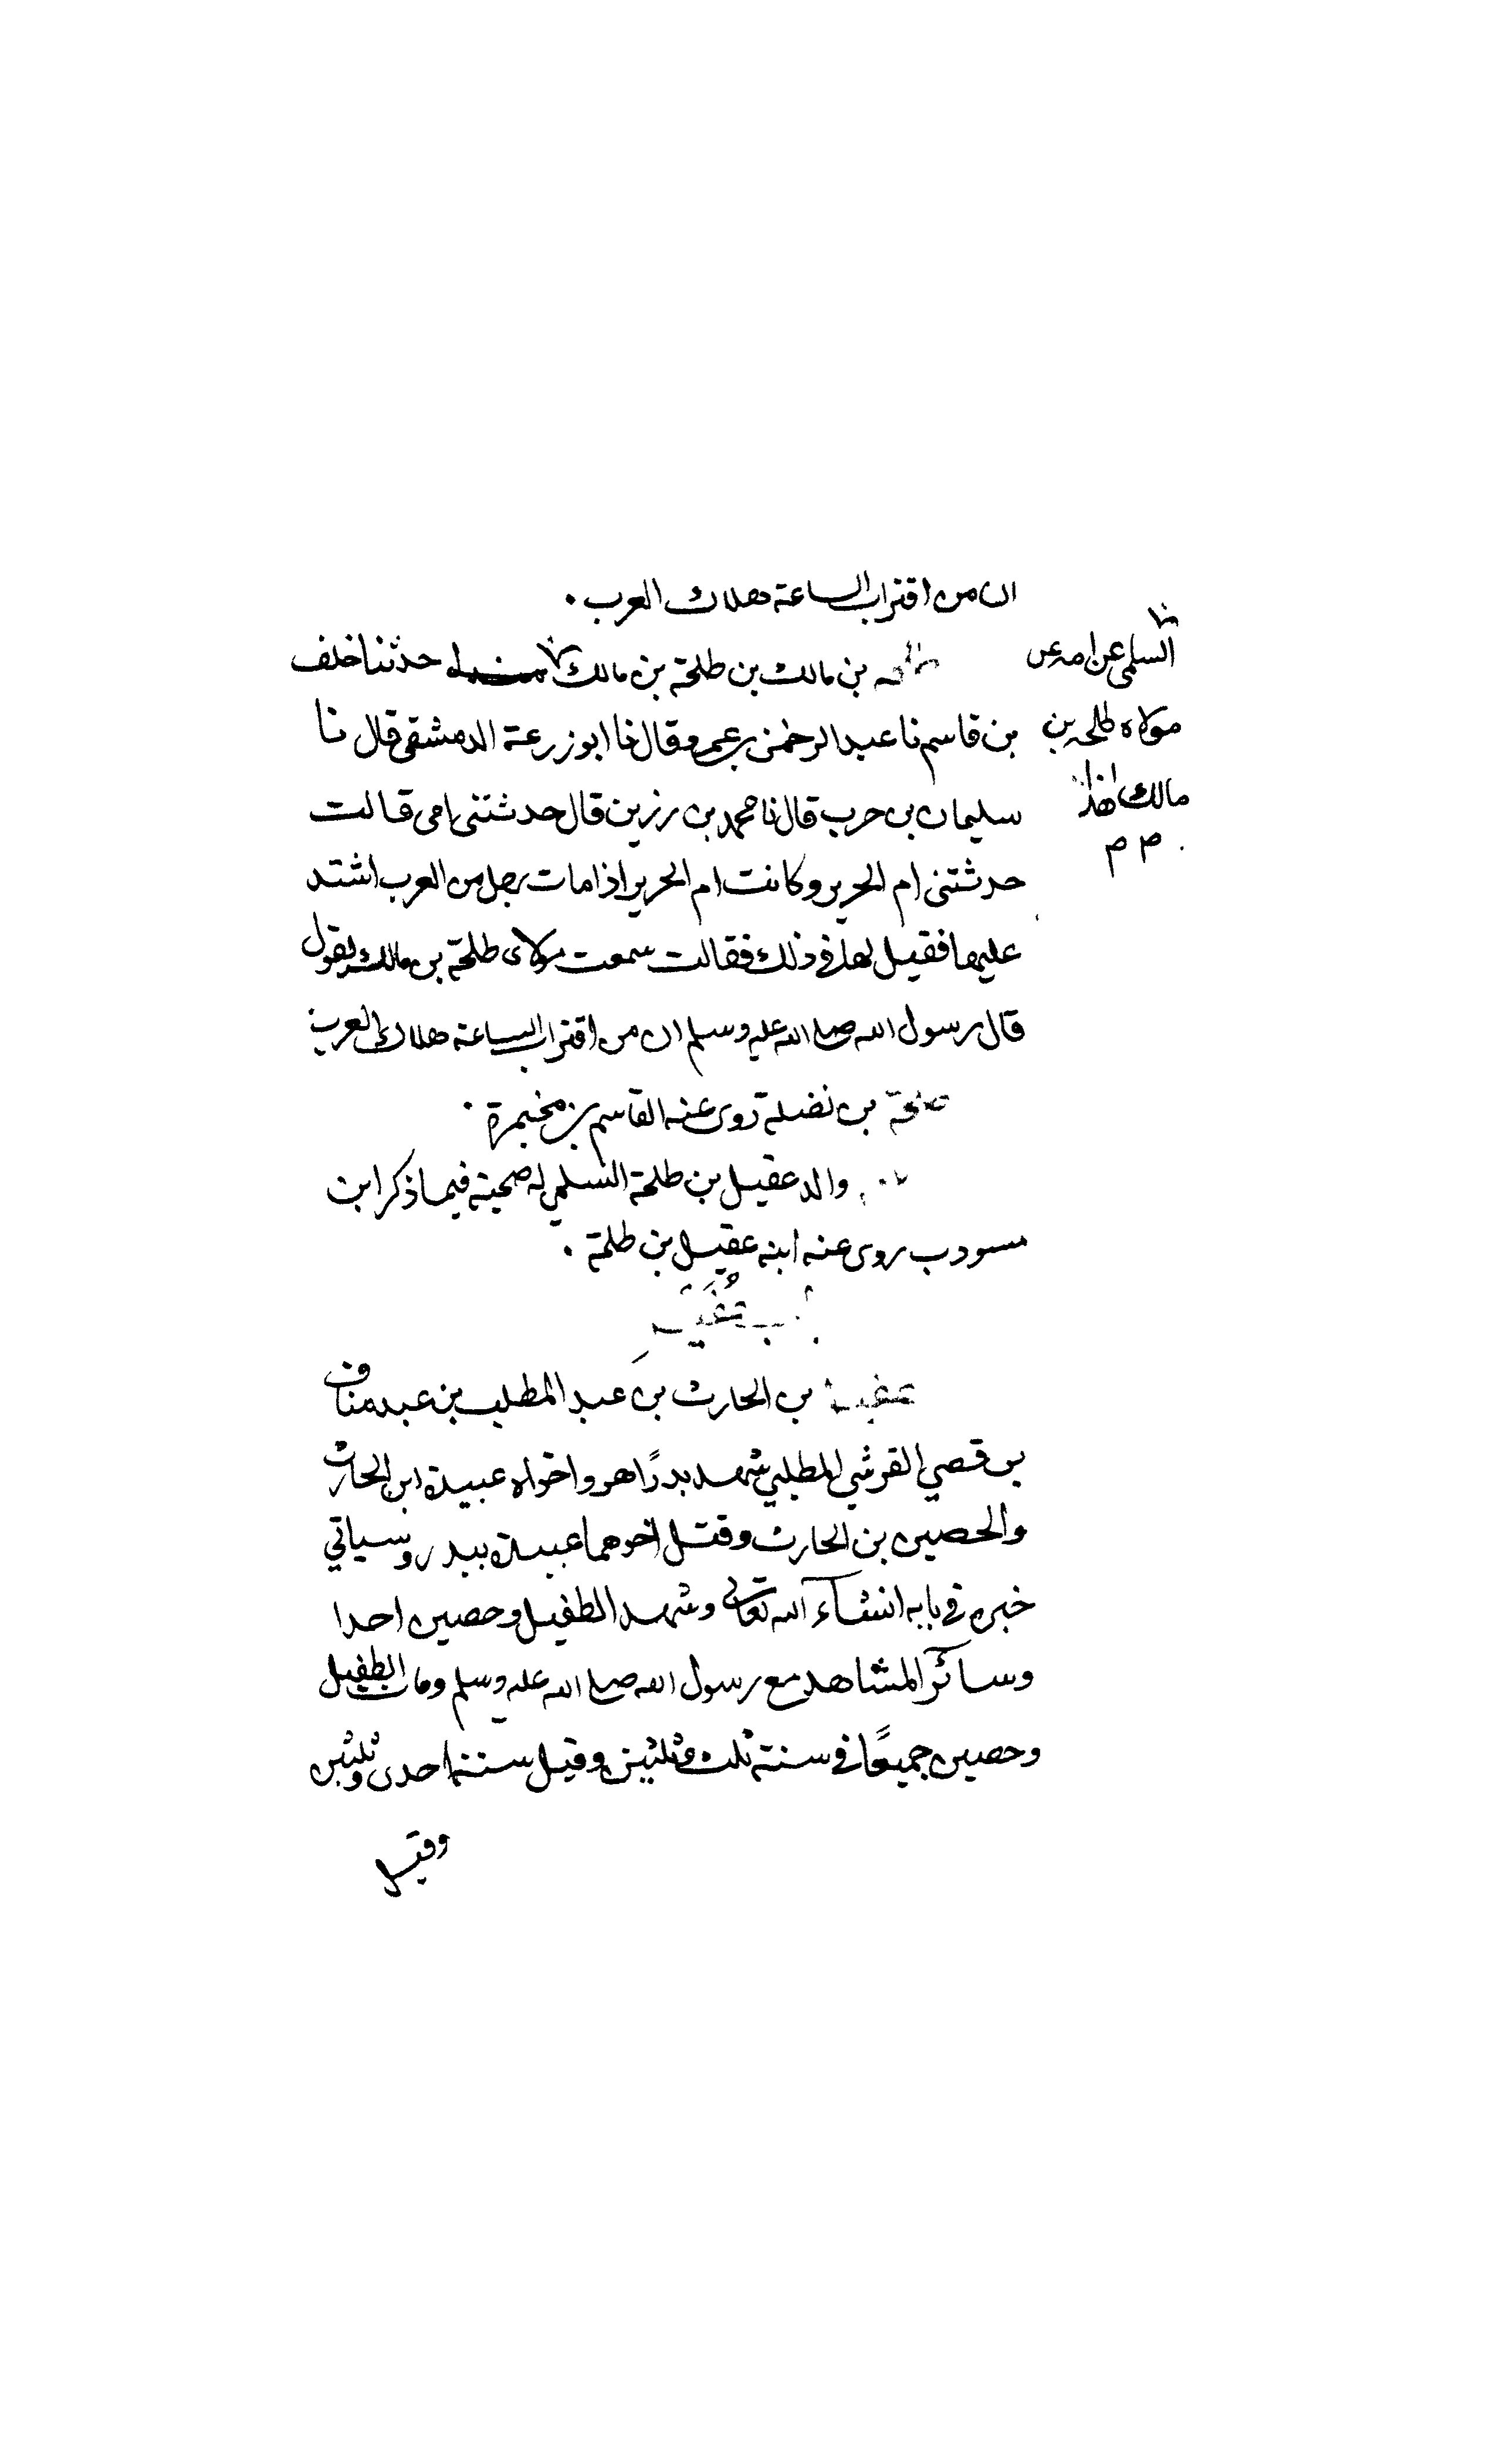 ان من اقتراب الساعة هلاك العرب ۰
بن مالك بن طلحة بن مالك حدثنا خلف
السلمى عن امه عن
مولاه طلحه بن
مالك هذا
م م
بن قاسم نا عبد الرحمن بن عمر وقال نا ابو زرعة الدمشقي قال نا
سليمان بن حرب قال نا محمد بن رزين قال حدثتنى امى قالت
حدثتنى ام الحرير وكانت ام الحرير اذا مات رجل من العرب اشتد
عليها فقيل لها في ذلك فقالت سمعت مولاى طلحة بن مالك يقول
قال رسول الله صلى الله عليه وسلم ان من اقتراب الساعة هلاك العرب
طلحة بن نضلة روى عنه القاسم بن مخيمرة ۰
والد عقيل بن طلحة السلمي له صحبة فيما ذكر ابن
روى عنه ابنه عقيل بن طلحة ۰
باب طفيل
طفيل بن الحارث بن عبد المطلب بن عبد مناف
بن قصي القرشي المطلبي شهد بدرًا هو واخواه عبيدة ابن الحارث
والحصين بن الحارث وقتل اخوهما عبيدة ببدر وسياتي
خبره في بابه انشآء الله تعالى وشهد الطفيل وحصين احدا
وسآئر المشاهد مع رسول الله صلى الله عليه وسلم ومات الطفيل
وحصين جميعًا في سنة ثلث وثلثين وقيل سنة احدى وثلثين
وقيل